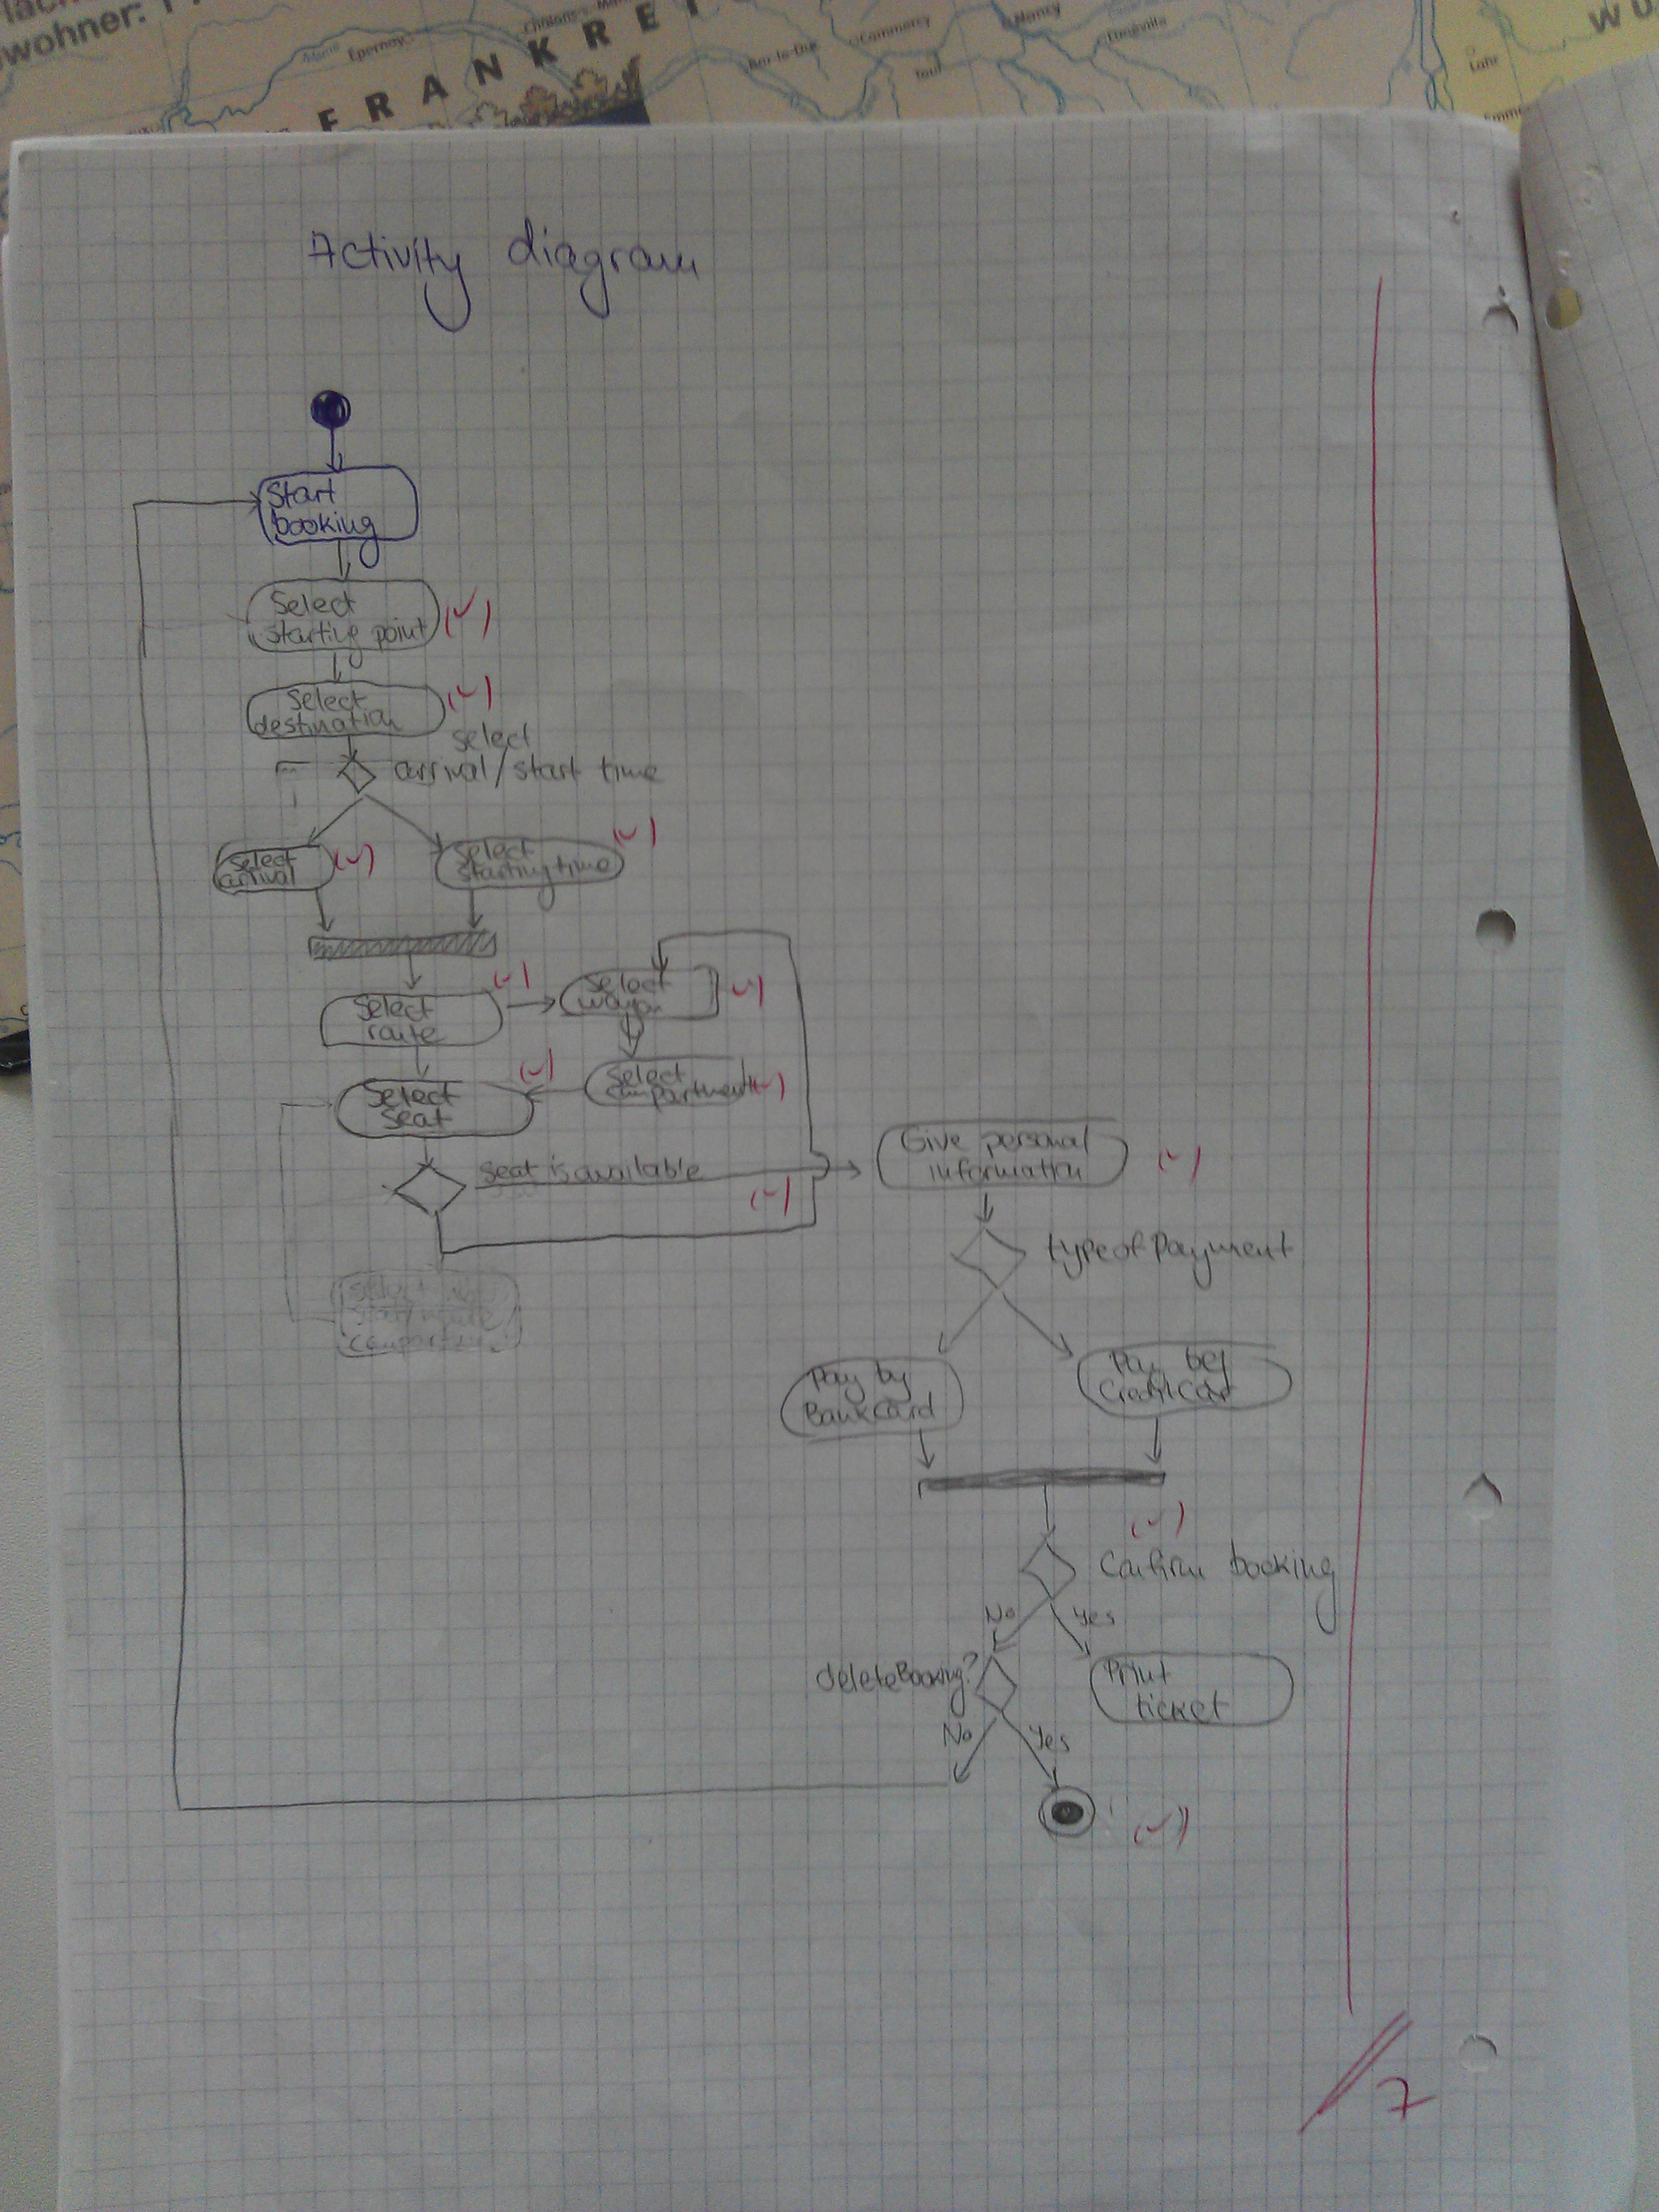 wohner:
Epernay
FRANKRE
Bar-le-Duc
Commercy
Toul
Nancy
Lunéville
Lahr
W Ü
Activity diagram
Start
booking
Select
starting point
Select
destination
select
arrival/start time
Select
arrival
Select
starting time
Select
route
Select
Select
seat
Select
compartment
seat is available
Give personal
information
type of Payment
Pay by
BankCard
Pay by
CreditCard
Confirm booking
No
Yes
deleteBooking?
Print
ticket
No
Yes
7